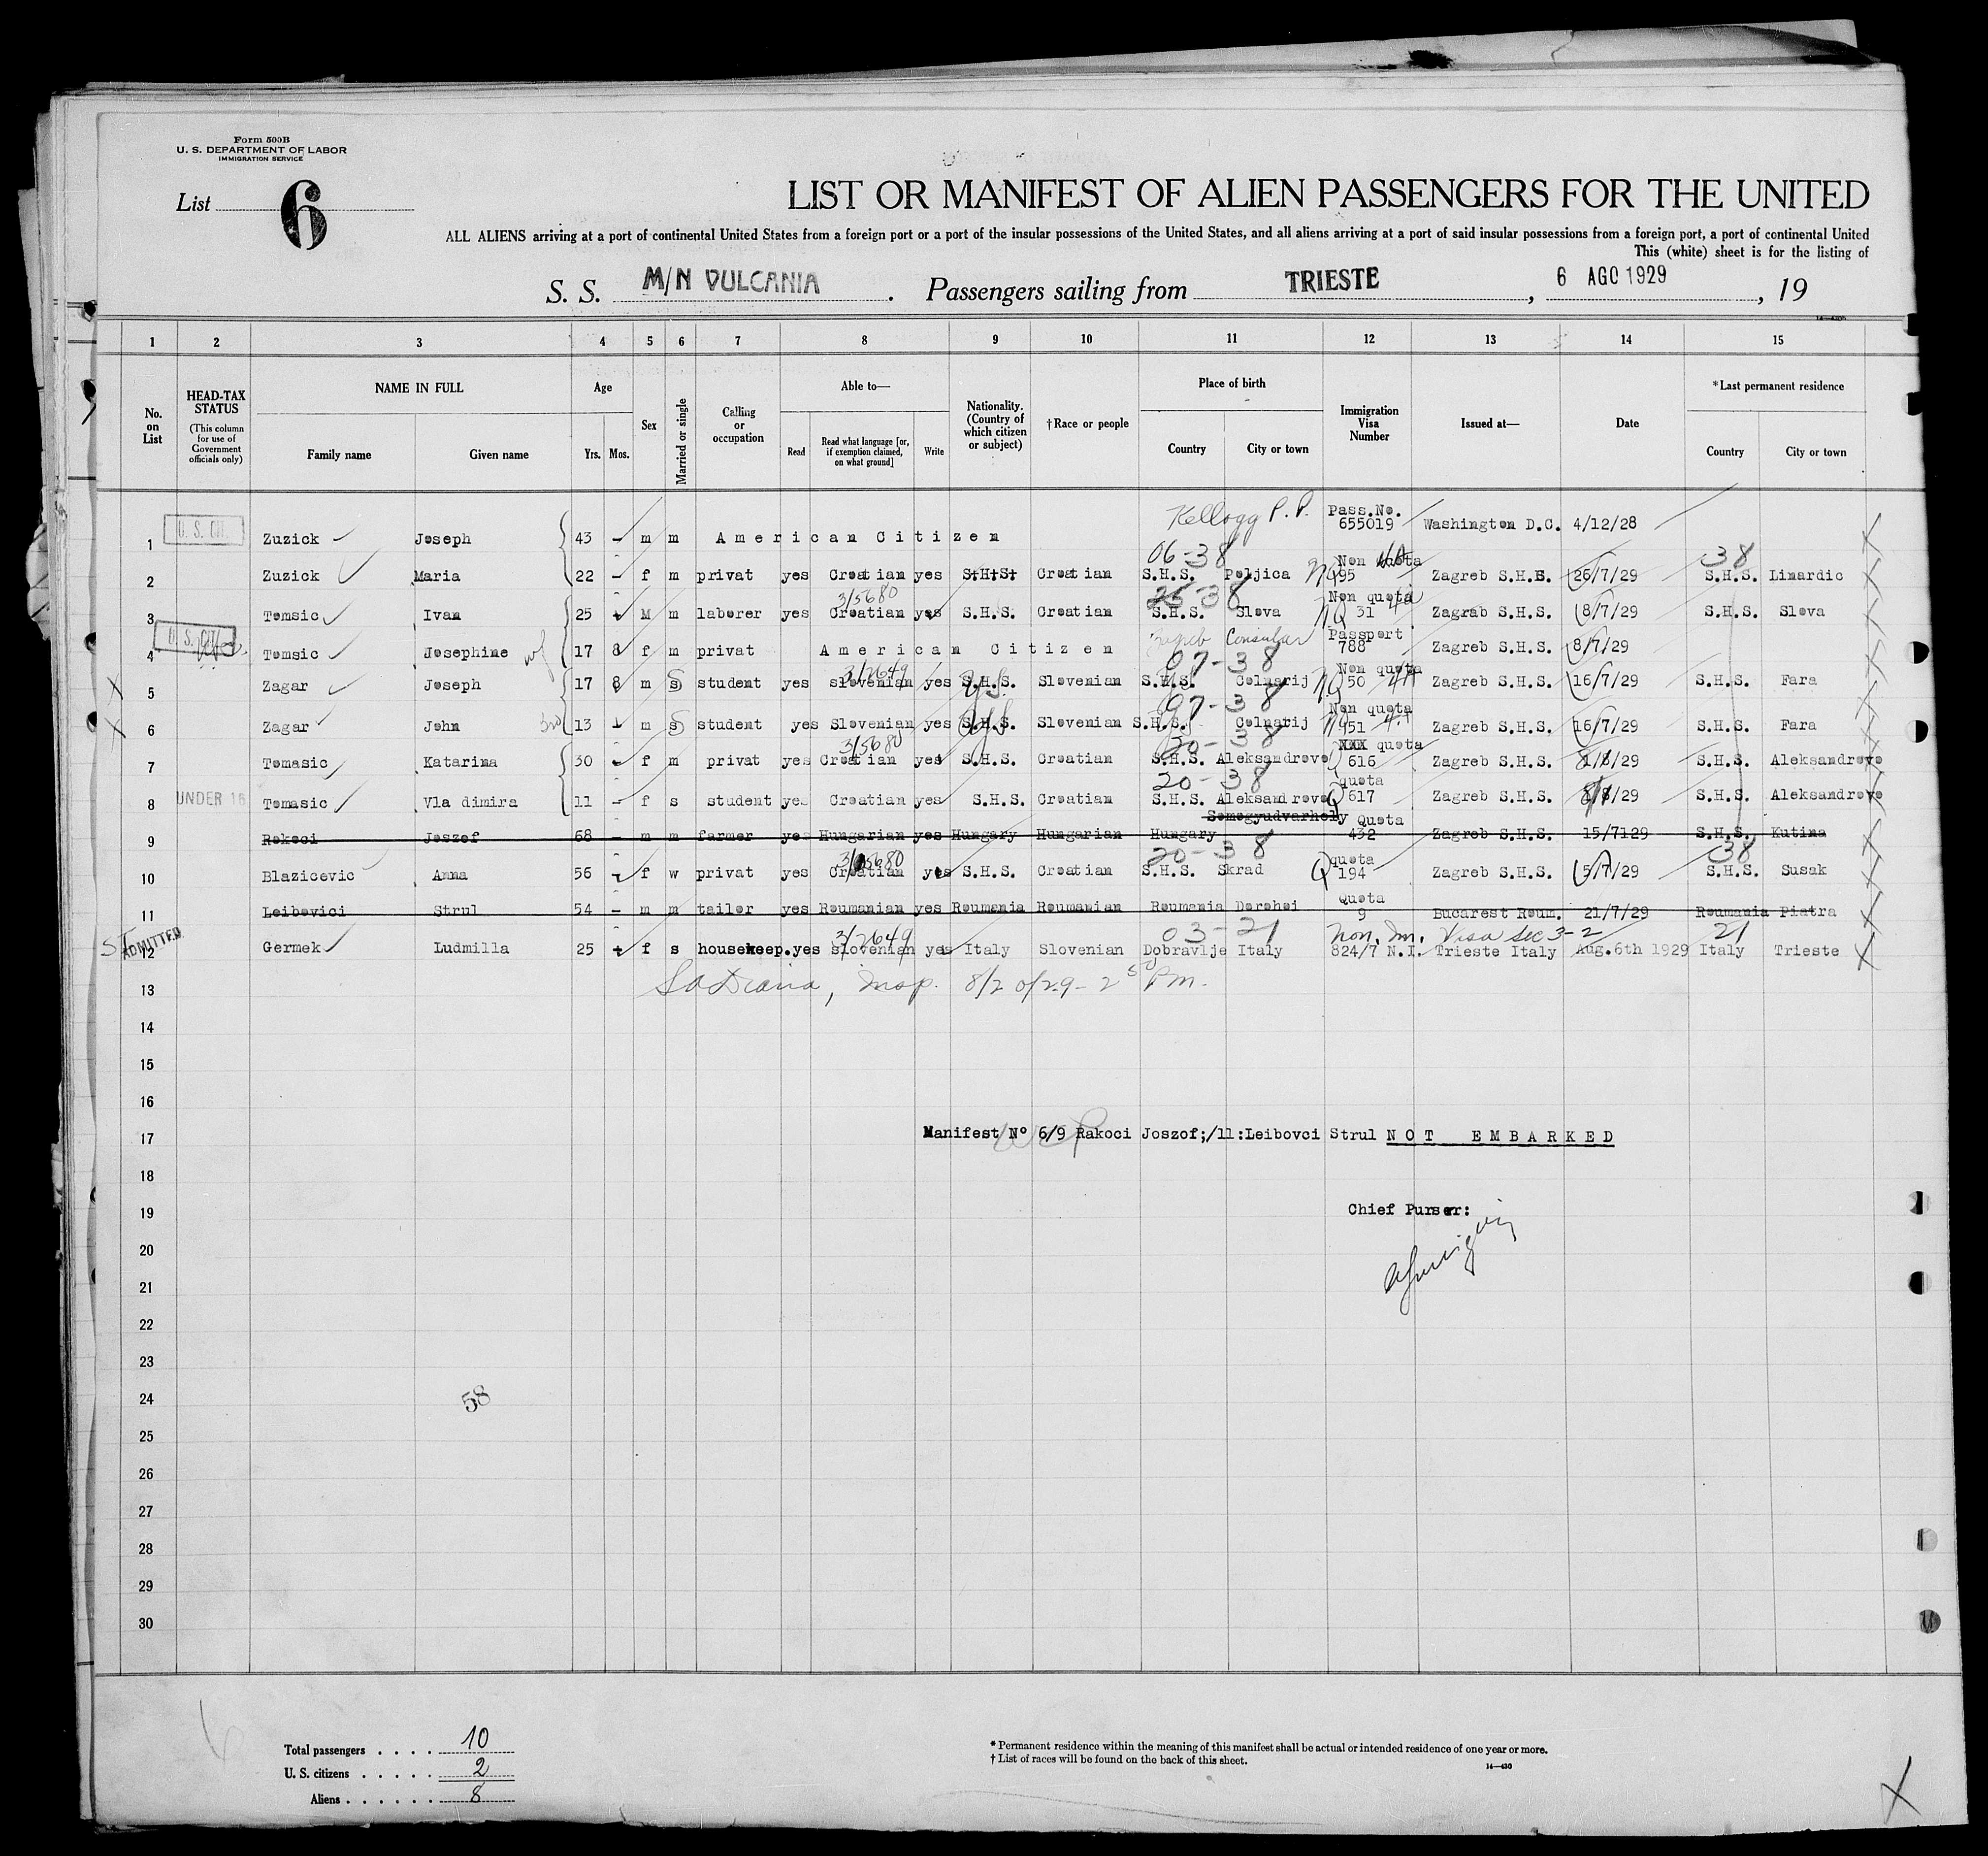 Form 500B
U. S. DEPARTMENT OF LABOR
IMMIGRATION SERVICE
List 6
LIST OR MANIFEST OF ALIEN PASSENGERS FOR THE UNITED
ALL ALIENS arriving at a port of continental United States from a foreign port or a port of the insular possessions of the United States, and all aliens arriving at a port of said insular possessions from a foreign port, a port of continental United
This (white) sheet is for the listing of
S. S. M/N VULCANIA. Passengers sailing from TRIESTE, 6 AGO 1929, 19
1 2 3 4 5 6 7 8 9 10 11 12 13 14 15
No. on List
HEAD-TAX STATUS (This column for use of Government officials only)
NAME IN FULL
Family name Given name
Age
Yrs. Mos.
Sex
Married or single
Calling or occupation
Able to—
Read Read what language [or, if exemption claimed, on what ground] Write
Nationality. (Country of which citizen or subject)
†Race or people
Place of birth
Country City or town
Immigration Visa Number
Issued at—
Date
*Last permanent residence
Country City or town
Kellogg P. P. Pass.No.
1 U. S. CIT. Zuzick Joseph 43 - m m American Citizen 655019 Washington D.C. 4/12/28
06-38 Non quota 38
2 Zuzick Maria 22 - f m privat yes Croatian yes S.H.S. Croatian S.H.S. Poljica NQ 95 Zagreb S.H.S. 26/7/29 S.H.S. Linardic
3/5680 26-38 Non quota
3 Tomsic Ivan 25 M m laborer yes Croatian yes S.H.S. Croatian S.H.S. Sleva NQ 31 Zagrab S.H.S. 8/7/29 S.H.S. Sleva
U. S. CIT. Consular Passport
4 Tomsic Josephine wf 17 8 f m privat American Citizen 788 Zagreb S.H.S. 8/7/29
3/2649 07-38 Non quota
5 Zagar Joseph 17 8 m s student yes slovenian yes S.H.S. Slovenian S.H.S. Colnarij NQ 50 Zagreb S.H.S. 16/7/29 S.H.S. Fara
07-38 Non quota
6 Zagar John 13 m s student yes Slovenian yes S.H.S. Slovenian S.H.S. Colnarij NQ 51 Zagreb S.H.S. 16/7/29 S.H.S. Fara
3/5680 20-38 XXX quota
7 Tomasic Katarina 30 - f m privat yes Croatian yes S.H.S. Croatian S.H.S. Aleksandrovo 616 Zagreb S.H.S. 1/8/29 S.H.S. Aleksandrovo
20-38 quota
8 UNDER 16 Tomasic Vla dimira 11 - f s student yes Croatian yes S.H.S. Croatian S.H.S. Aleksandrovo Q 617 Zagreb S.H.S. 8/29 S.H.S. Aleksandrovo
Somogyudvarhely Quota
9 Rakoci Joszof 68 - m m farmer yes Hungarian yes Hungary Hungarian Hungary 432 Zagreb S.H.S. 15/7129 S.H.S. Kutina
3/5680 20-38 quota 38
10 Blazicevic Anna 56 f w privat yes Croatian yes S.H.S. Croatian S.H.S. Skrad Q 194 Zagreb S.H.S. 5/7/29 S.H.S. Susak
Quota
11 Leibovici Strul 54 - m m tailor yes Roumanian yes Roumania Roumanian Roumania Dorohoi 9 Bucarest Roum. 21/7/29 Roumania Piatra
ADMITTED 3/2649 03-21 Non. Im. Visa Sec 3-2 21
12 Germek Ludmilla 25 f s housekeep. yes slovenian yes Italy Slovenian Dobravlje Italy 824/7 N.I. Trieste Italy Aug.6th 1929 Italy Trieste
13 Insp. 8/20/29 - 2 50 PM.
14
15
16
17 Manifest N° 6/9 Rakoci Joszof;/11:Leibovci Strul NOT EMBARKED
18
19 Chief Purser:
20
21
22
23
24 58
25
26
27
28
29
30
Total passengers . . . . 10
U. S. citizens . . . . . 2
Aliens . . . . . . 8
* Permanent residence within the meaning of this manifest shall be actual or intended residence of one year or more.
† List of races will be found on the back of this sheet.
14—430